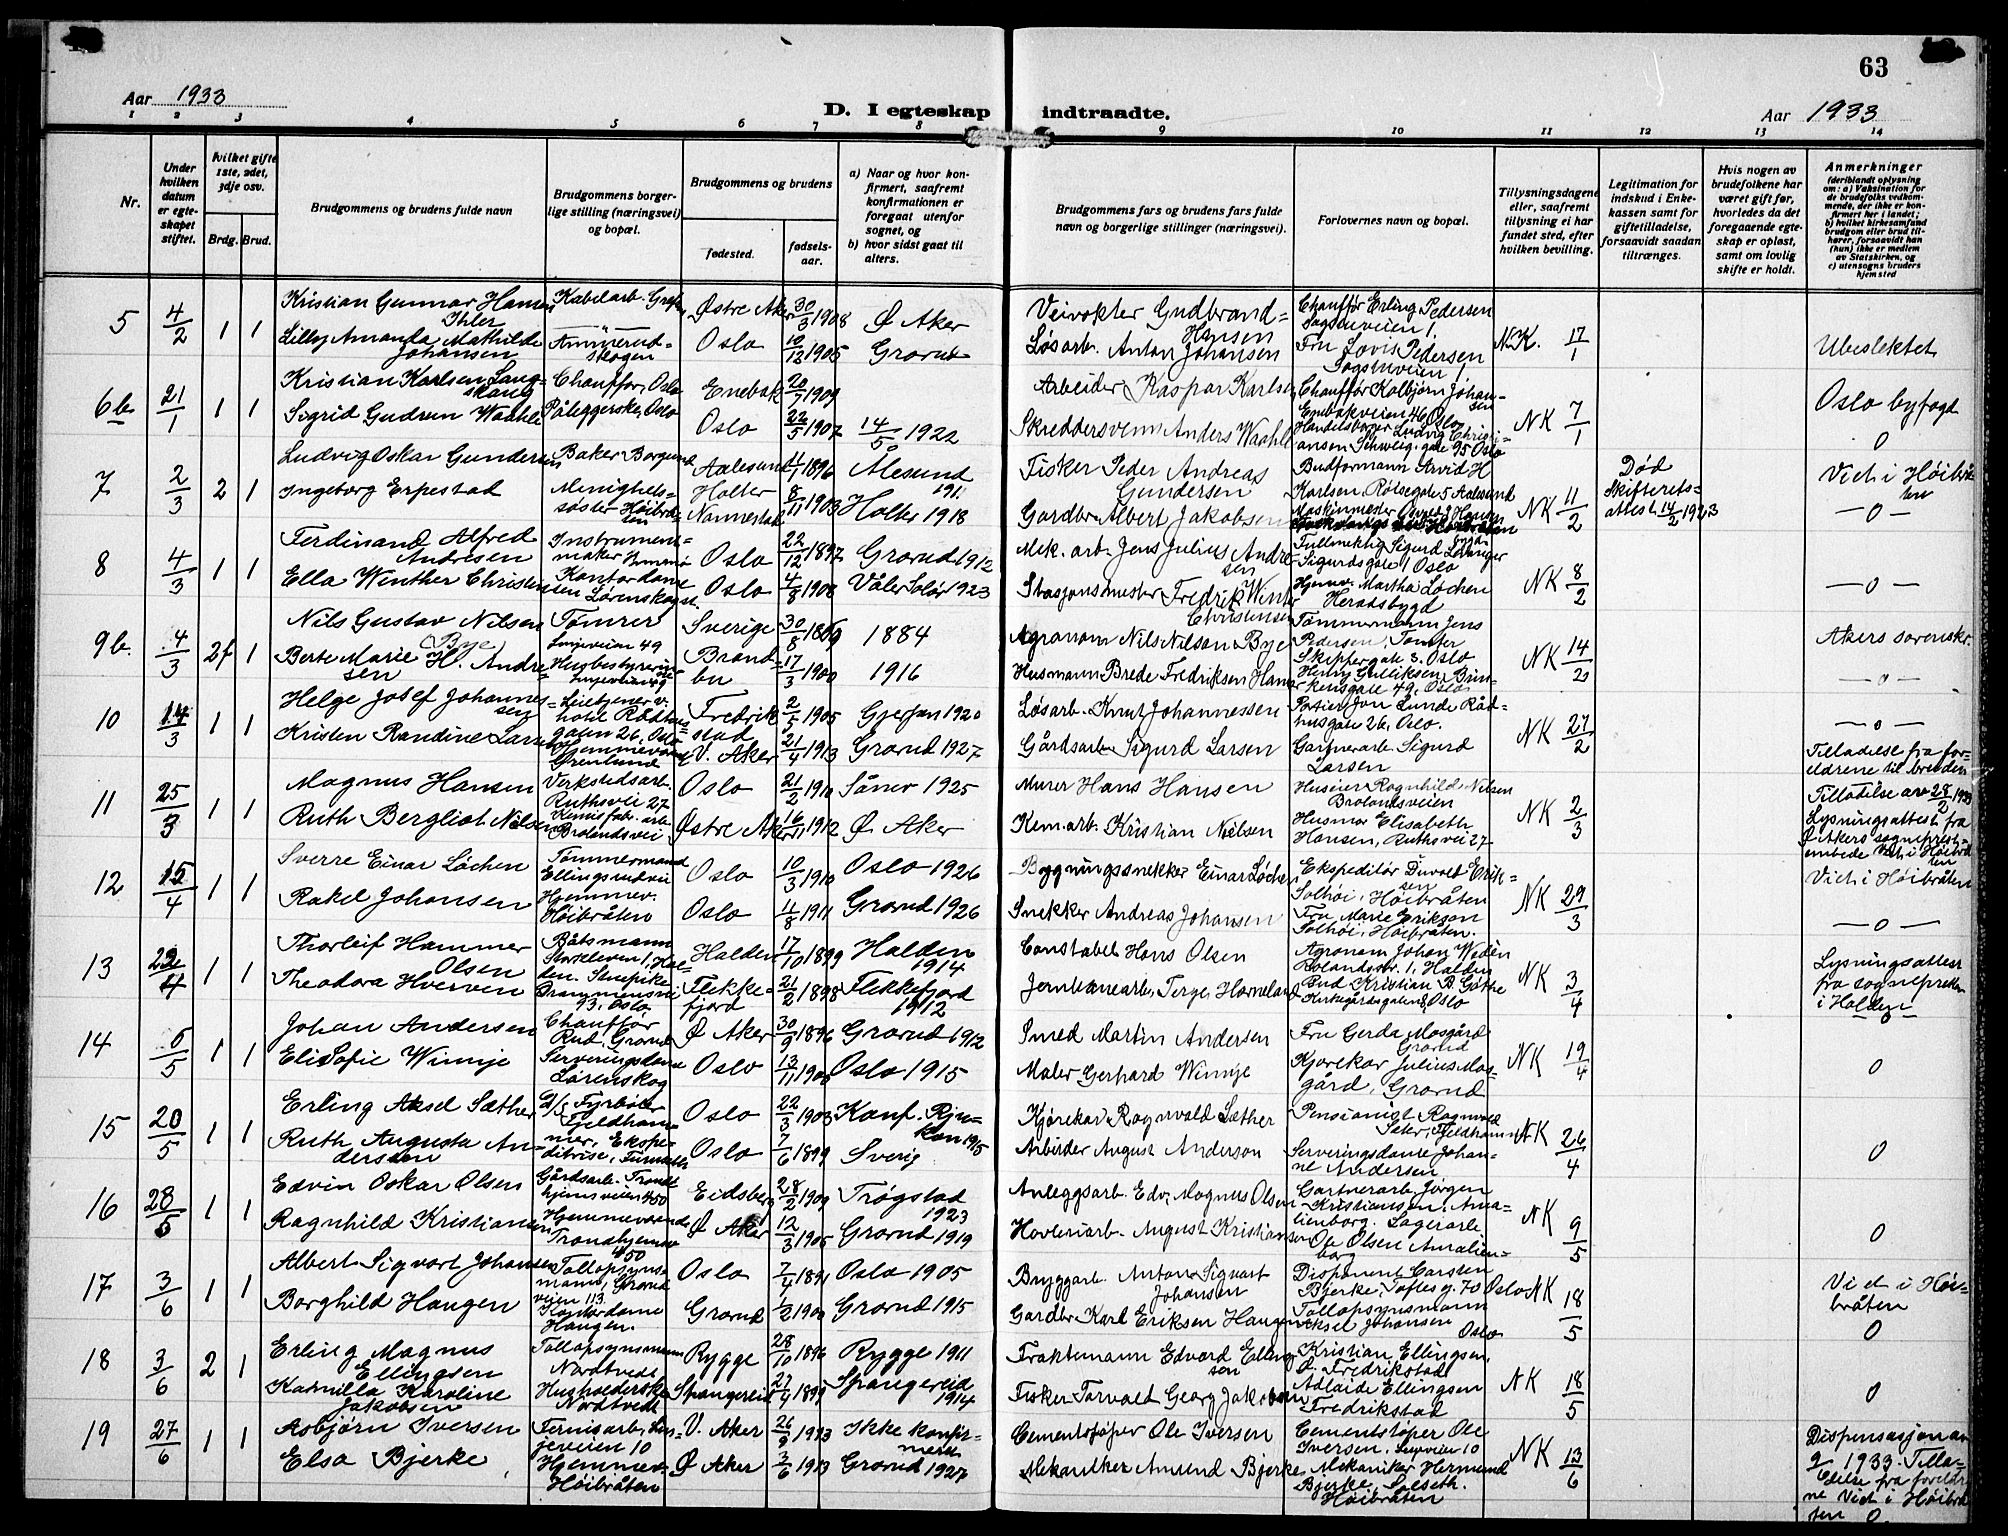 63
Aar 1933
D. I egteskap indtraadte.
Aar 1933
1 2 3 4 5 6 7 8 9 10 11 12 13 14
Nr.
Under hvilken datum er egteskapet stiftet.
hvilket gifte 1ste, 2det, 3dje osv.
Brdg. Brud.
Brudgommens og brudens fulde navn
Brudgommens borgerlige stilling (næringsvei) og bopæl.
Brudgommens og brudens
fødested.
fødselsaar.
a) Naar og hvor konfirmert, saafremt konfirmationen er foregaat utenfor sognet, og
b) hvor sidst gaat til alters.
Brudgommens fars og brudens fars fulde navn og borgerlige stillinger (næringsvei).
Forlovernes navn og bopæl.
Tillysningsdagene eller, saafremt tillysning ei har fundet sted, efter hvilken bevilling.
Legitimation for indskud i Enkekassen samt for giftetilladelse, forsaavidt saadan tiltrænges.
Hvis nogen av brudefolkene har været gift før, hvorledes da det foregaaende egteskap er opløst, samt om lovlig skifte er holdt.
Anmerkninger (deriblandt oplysning om: a) Vaksination for de brudefolks vedkommende, der ikke er konfirmert her i landet; b) hvilket kirkesamfund brudgom eller brud tilhører, forsaavidt han (hun) ikke er medlem av Statskirken, og c) utensogns bruders hjemsted
5 4/2 1 1 Kristian Gunnar Hansen Ihler Kabelarb. Østre Aker 30/3 1908 Ø Aker Veivokter Gudbrand Hansen Chauffør Erling Pedersen
Lilly Amanda Mathilde Johansen Ammerudskogen Oslo 10/12 1905 Grorud Løsarb. Anton Johansen Fru Lovis Pedersen NK. 17/1 Ubeslektet
6b 21/1 1 1 Kristian Karlsen Langskaug Chauffør, Oslo Enebak 20/7 1909 Arbeider Kaspar Karlsen Chauffør Kolbjørn Johansen Enebakveien 46 Oslo Oslo byfogd
Sigrid Gudrun Waahle Påleggerske, Oslo Oslo 22/5 1907 14/5 1922 Skreddersvenn Anders Waahle Handelsborger Ludvig Christiansen Schweig.gate 95 Oslo NK 7/1 0
7 2/3 2 1 Ludvig Oskar Gundersen Baker Borgund Aalesund 4/1 1896 Ålesund 1911 Fisker Peder Andreas Gundersen Budformann Arvid H Karlsen, Rølsegate 5 Aalesund Død Skifteretsattest 14/2 1923 Vieth i Høibråten
Ingeborg Erpestad Menighetssøster Høibråten Holter Nannestad 8/11 1903 Holter 1918 Gardbr. Albert Jakobsen NK 11/2 —o—
8 4/3 1 1 Ferdinand Alfred Andresen Instrumentmaker Oslo 22/12 1897 Grorud 1912 Mek. arb. Jens Julius Andresen Fullmektig Sigurd Sigurdsgate 1 Oslo
Ella Winther Christensen Kontordame Lørenskog Oslo 4/8 1908 Våler Solør 1923 Stasjonsmester Fredrik Winter Christensen Hjemv. Martha Løchen Heradsbygd NK 8/2 —o—
9b. 4/3 2f 1 Nils Gustav Nilsen Bye Tømrer Linjeveien 49 Sverige 30/8 1869 1884 Agronom Nils Nilson Bye Tømmermann Jens Pedersen, Tomter Skippergate 3. Oslo Akers sorenskr.
Berte Marie H. Andresen Husbestyrerinne Linjeveien 49 Brandbu 17/3 1900 1916 Husmann Brede Fredriksen Hamar Henry Gulliksen Brinkensgate 49, Oslo NK 14/2 —o—
10 14/3 1 1 Helge Josef Johannessen Leietjener v. hotel Rådhusgaten 26, Oslo Fredrikstad 2/5 1905 Gjerpen 1920 Løsarb. Knut Johannessen Portier Jon Lunde Rådhusgate 26, Oslo. —o—
Kristen Randine Larsen Hjemmeværende Grenlund V. Aker 21/4 1913 Grorud 1927 Gårdsarb. Sigurd Larsen Gartnerarb. Sigurd Larsen NK 27/2 Tilladelse fra foreldrene til bruden
11 25/3 1 1 Magnus Hansen Verkstedsarb. Ruthsvei 27 Oslo 21/2 1910 Såner 1925 Murer Hans Hansen Husmor Ragnhild Nilsen Brolandsveien Tilladelse av 28/2 1933
Ruth Bergliot Nilsen Kemisfabr. arb. Brolandsvei Østre Aker 16/11 1912 Ø. Aker Kem.arb. Kristian Nilsen Husmor Elisabeth Hansen, Ruthsvei 27 NK 2/3 Lysningsattest fra Ø Akers sogneprestembede Viet i Høibråten
12 15/4 1 1 Sverre Einar Løchen Tømmermand Ellingsrudvei Oslo 10/3 1910 Oslo 1926 Bygningssnekker Einar Løchen Ekspeditør Duvold Eriksen Solhøi, Høibråten Viet i Høibråten
Rakel Johansen Hjemmev. Høibråten Oslo 4/8 1911 Grorud 1926 Snekker Andreas Johansen Fru Marie Erikson Solhøi, Høibråten. NK 29/3 —o—
13 22/4 1 1 Thorleif Hammer Olsen Båtsmann Halden 17/10 1899 Halden 1914 Constabel Hans Olsen Agronom Johan Wedén Rolandsvr. 1, Halden Lysningsattest fra sognepresten i Halden
Theodora Hverven Drammensvei 93, Oslo Flekkefjord 21/2 1898 Flekkefjord 1912 Jernbanearb. Terge Horneland Bud Kristian B. Gøthe Kirkegårdsgaten Oslo NK 3/4
14 6/5 1 1 Johan Andersen Chauffør Rud, Grorud Ø Aker 30/9 1896 Grorud 1912 Smed Martin Andersen Fru Gerda Mosgård Grorud
Eli Sofie Winnje Serveringsdame Lørenskog Oslo 13/11 1905 Oslo 1915 Maler Gerhard Winnje Kjørekar Julius Mosgård, Grorud NK 19/4 0
15 20/5 1 1 Erling Aksel Sæther D/S Fyrbøter Fjeldhammer, Oslo 22/3 1903 Konf. Rjukan 1915 Kjørekar Ragnvald Sæther Pensionist Ragnvald Sæter, Fjeldhammer
Ruth Augusta Andersson Ekspeditrise, Oslo 7/6 1899 Sverig Arbeider August Anderson Serveringsdame Johanne Andersen NK 26/4 0
16 28/5 1 1 Edvin Oskar Olsen Gårdsarb. Trondhjemsveien 450 Eidsberg 28/2 1909 Trøgstad 1923 Anleggsarb. Edv. Magnus Olsen Gartnerarb. Jørgen Kristianssen, Amalienborg.
Ragnhild Kristiansen Hjemmeværende Trondhjemsv 450 Ø Aker 12/3 1905 Grorud 1919 Høvleriarb. August Kristiansen Lagerarb. Ole Olsen Amalienborg NK 9/5 0
17 3/6 1 1 Albert Sigvart Johansen Tollopsynsmann, Grorudveien 113 Oslo 7/4 1891 Oslo 1905 Bryggarb. Anton Sigvart Johansen Disponent Carsten Bjerke, Toftes g. 70 Oslo Viet i Høibråten
Borghild Haugen Kontordame Haugen. Grorud 1/2 1900 Grorud 1915 Gardbr. Karl Eriksen Haugen Tollopsynsmann Aksel Johansen Oslo NK 18/5 0
18 3/6 2 1 Erling Magnus Ellingsen Tollopsynsmann Nordtvedt Rygge 28/10 1896 Rygge 1911 Fraktemann Edvard Ellingsen Kristian Ellingsen, Ø. Fredrikstad
Kamilla Karoline Jakobsen Husholderske Nordtvedt Spangereid 27/4 1899 Spangereid 1914 Fisker Torvald Georg Jakobsen Adlaide Ellingsen Fredrikstad NK 18/5 0
19 27/6 1 1 Asbjørn Iversen Fernisarb. Linjeveien 10 V. Aker 26/9 1913 Ikke konfirmert Cementstøper Ole Iversen Cementstøper Ole Iversen, Linjeveien 10 Dispensasjon av 9/ 1933. Tilladelse fra foreldrene
Elsa Bjerke Hjemmev. Høibråten Ø Aker 3/6 1913 Grorud 1927 Mekaniker Amund Bjerke Mekaniker Hermund Bjerke, Solseth. Høibråten NK 13/6 Viet i Høibråten 0.